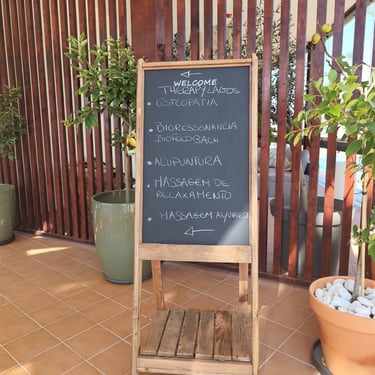 WELCOME
THERAPYLAGOS
OSTEOPATIA
BIORESSONANCIA
BIOREDIBACH
ACUPUNTURA
MASSAGEM DE
RELAXAMENTO
MASSAGEM AYURVED